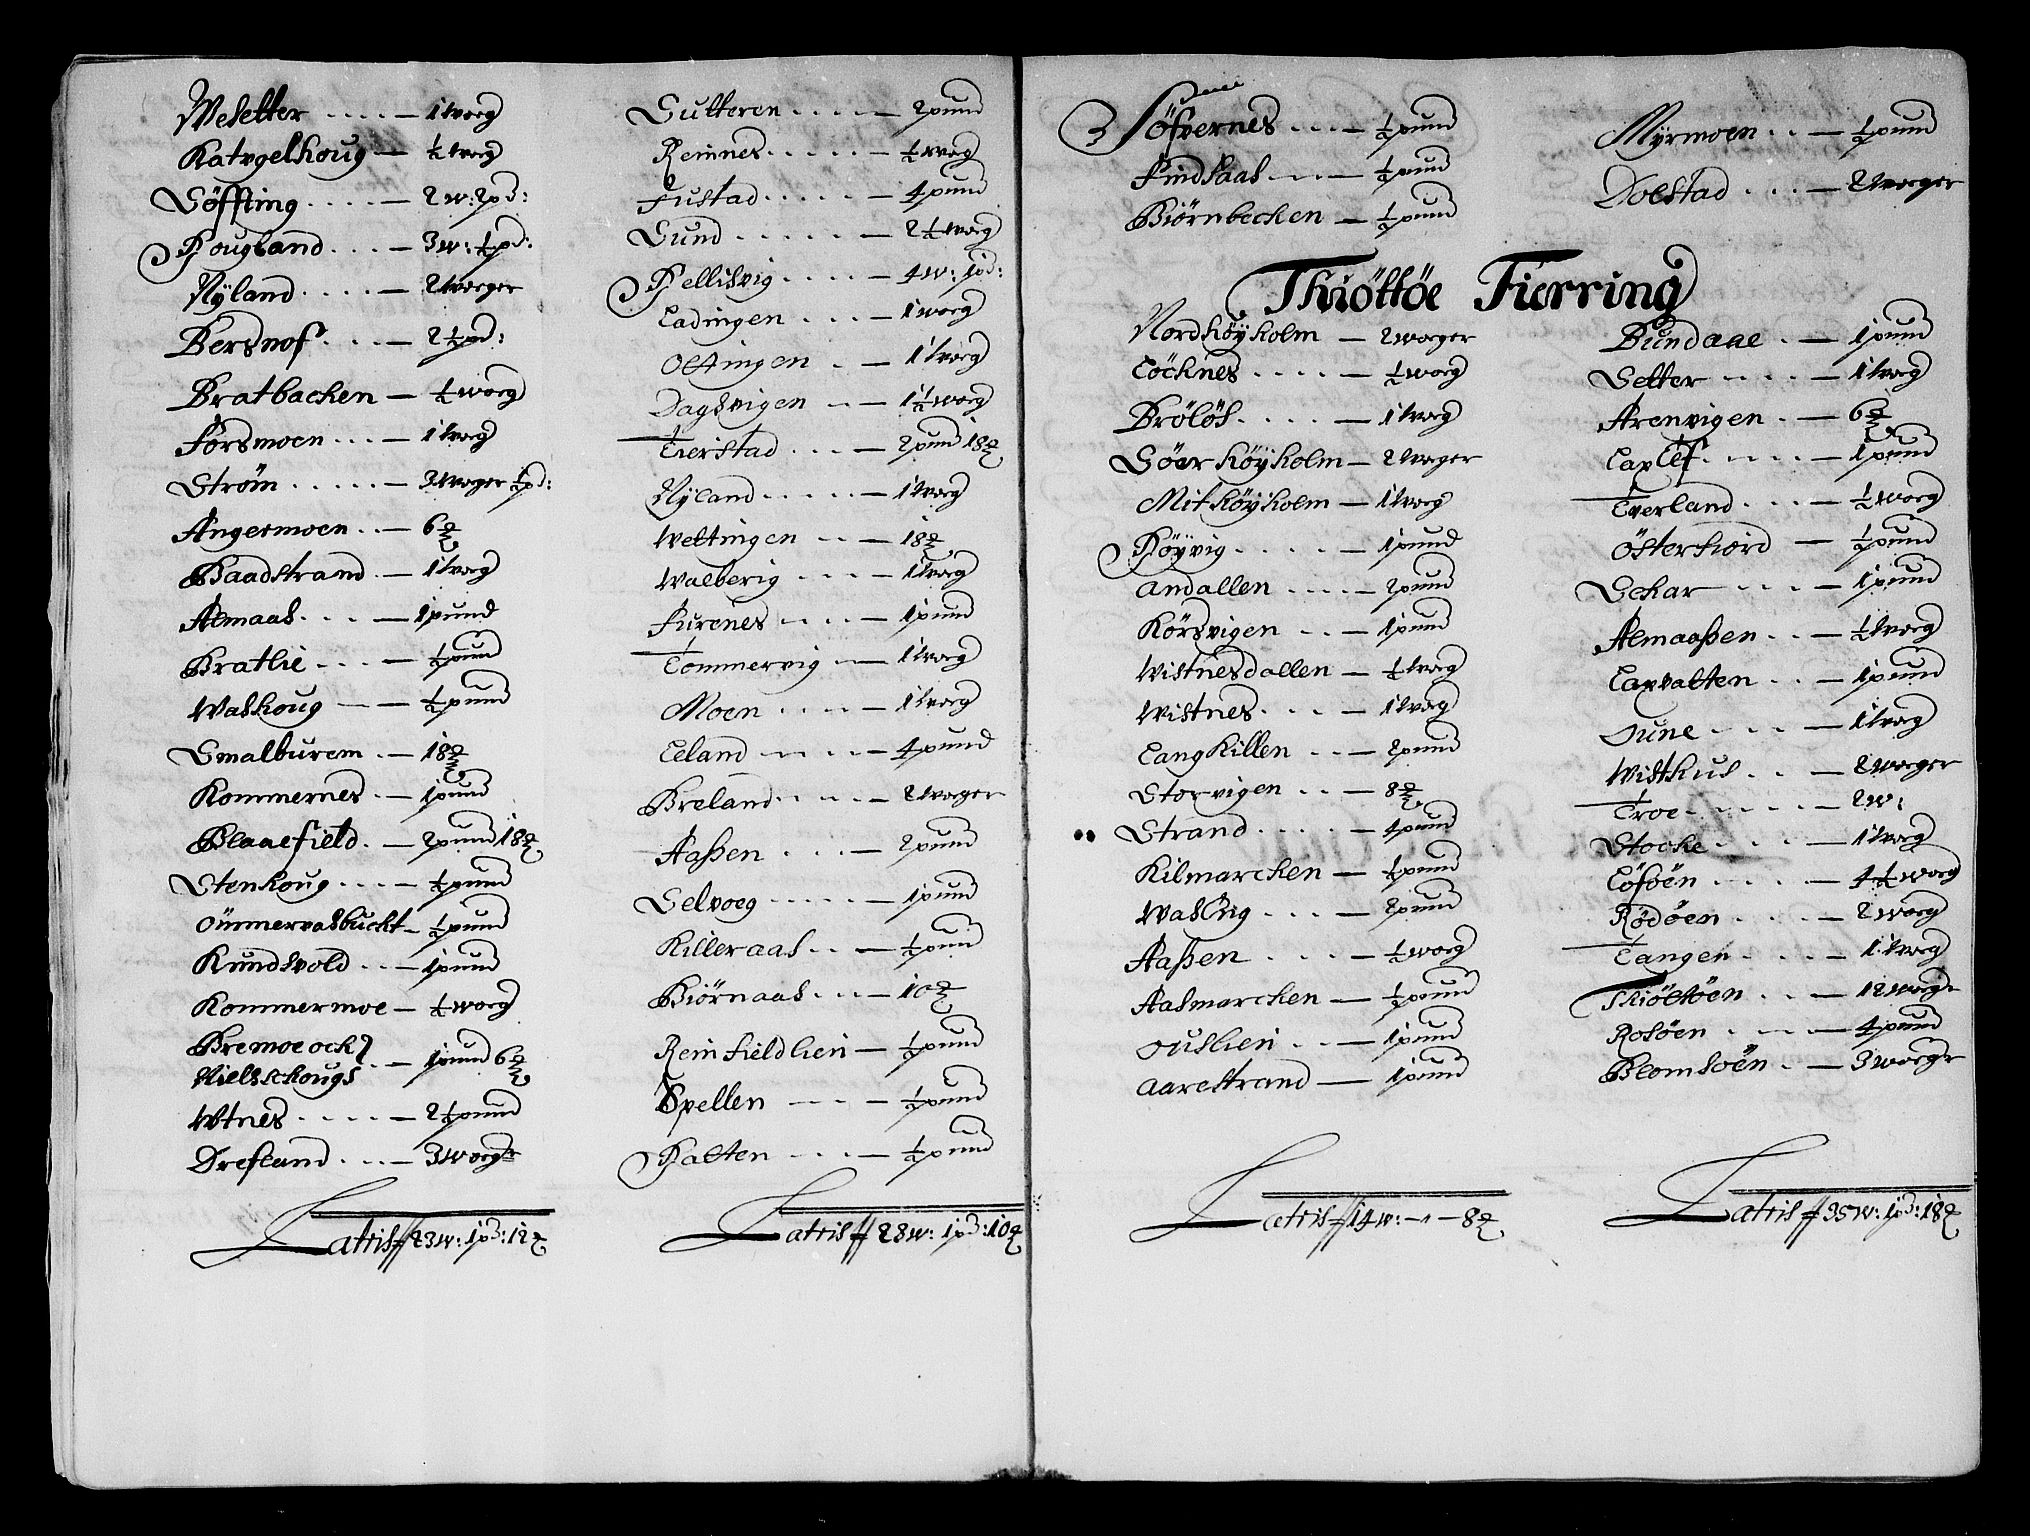 Weletter - - - - 1 Woeg
Katugelhoug - ½ Woeg
Söffting - - - - 2 w: 2 pd:
Fougland - - - - 3 w: ½ pd:
Nÿland - - - - 2 Woeger
Bersnof - - - 2½ pd:
Bratbacken - ½ woeg
Forsmoen - - - 1 Woeg
Strøm - - - - - 3 Woger ½ pd:
Angermoen - - 6 ℔
Baadstrand - - 1 Woeg
Almaas - - - 1 pund
Bratlie - - - - ½ pund
Walhoug - - - ½ pund
Smalburem - - 18 ℔
Kommernes - - 1 pund
Blaaefield - - 2 pund 18 ℔
Stenhoug - - - - ½ pund
Oünmervasbucht - ½ pund
Kundsvold - - - 1 pund
Kommermoe - ½ woeg
Bremoe och
Nielsschougs - - - 1 pund 6 ℔
Wtnes - - - - - 2½ pund
Drefland - - - - 3 Woegr
Latris ff 23 w: 1 pd: 12 ℔
Sulteren - - - - 2 pund
Remnes - - - - - ½ woeg
Fustad - - - - - 4 pund
Sund - - - - - 2½ Woeg
Fellisvig - - - - 4 w: 1 pd:
Ladingen - - - - 1 woeg
Oltingen - - - 1 Woeg
Dagsvigen - - 1½ woeg
Tierstad - - - - 2 pund 18 ℔
Nÿland - - - - - 1 Woeg
Weltingen - - - 18 ℔
Walberig - - - - 1 Woeg
Furenes - - - - 1 pund
Tommervig - - 1 Woeg
Moen - - - - - 1 Woeg
Eeland - - - - - 4 pund
Breland - - - - 2 Woeger
Aaßen - - - - 2 pund
Selvoeg - - - - - 1 pund
Killeraas - - - ½ pund
Biörnaas - - - 10 ℔
Reinfieldlien - ½ pund
Spellen - - - - ½ pund
Falten - - - - ½ pund
Latris ff 28 w: 1 pd: 10 ℔
Söfvernes - - - - ½ pund
Findsaas - - - - ½ pund
Biörnbechen - ½ pund
Myrmoen - - - ½ pund
Dolstad - - - - 2 Woeger
Thiöttöe Fierring
Nordhöÿholm - 2 woeger
Löcknes - - - - - ½ woeg
Brölös - - - - - 1 Woeg
Söerhöÿholm - 2 Woeger
Mithöÿholm - 1 Woeg
Höÿvig - - - - - 1 pund
Andallen - - - - 2 pund
Körsvigen - - - 1 pund
Wistnesdallen - ½ Woeg
Wistnes - - - - 1 Woeg
Langhillen - - - 2 pund
Storvigen - - - 8 ℔
Strand - - - - - 4 pund
Kilmarchen - ½ pund
Walvig - - - - 2 pund
Aaßen - - - - - ½ woeg
Aasmarchen - ½ pund
Ouslien - - - 1 pund
Aarestrand - 1 pund
Latris ff 14 w: - „ - 8 ℔
Bundaae - - - 1 pund
Setter - - - - - 1 Woeg
Arenvigen - - 6 ℔
Laxlef - - - - - 1 pund
Everland - - - - ½ woeg
Österfiord - ½ pund
Sekar - - - - - 1 pund
Almaaßen - - - ½ Woeg
Laxvalten - - - 1 pund
Sune - - - - - 1 Woeg
Wisthus - - - - 2 Woeger
Troe - - - - - 2 w:
Stocke - - - - - 1 Woeg
Löföen - - - - - 4½ Woeg
Rödöen - - - - 2 woeg
Tangen - - - - - 1 Woeg
Thiöttöen - - - 12 Woegr
Rosöen - - - - - 4 pund
Blomsöen - - - 3 woegr
Latris ff 35 w: 1 pd: 18 ℔